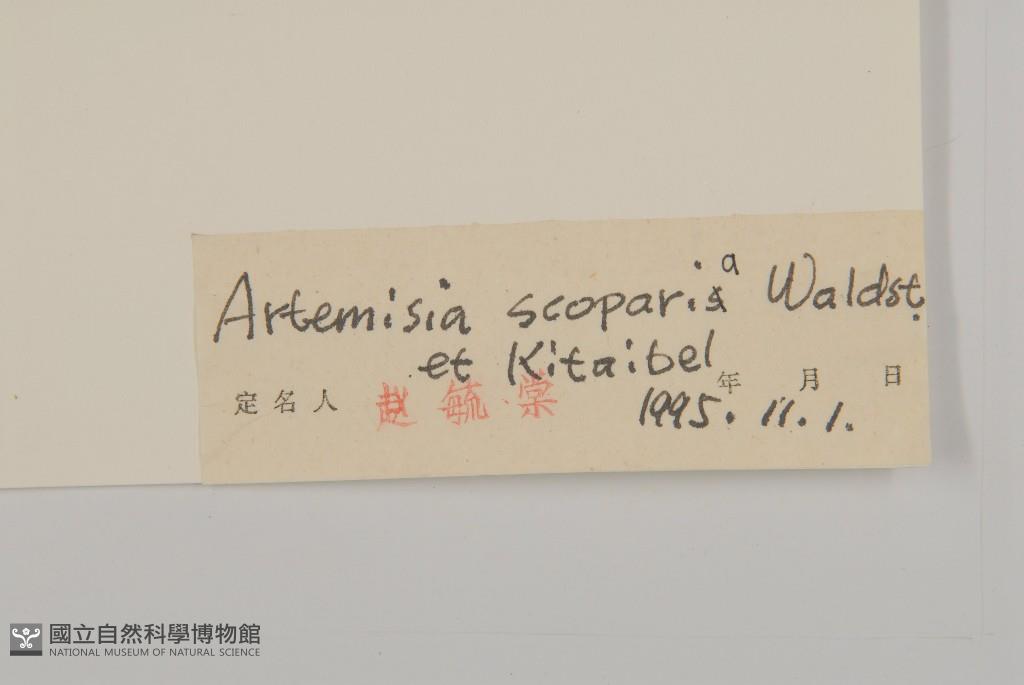 Artemisia scoparia Waldst.
et Kitaibel
定名人 赵毓棠 年 月 日
1995. 11. 1.
國立自然科學博物館
NATIONAL MUSEUM OF NATURAL SCIENCE